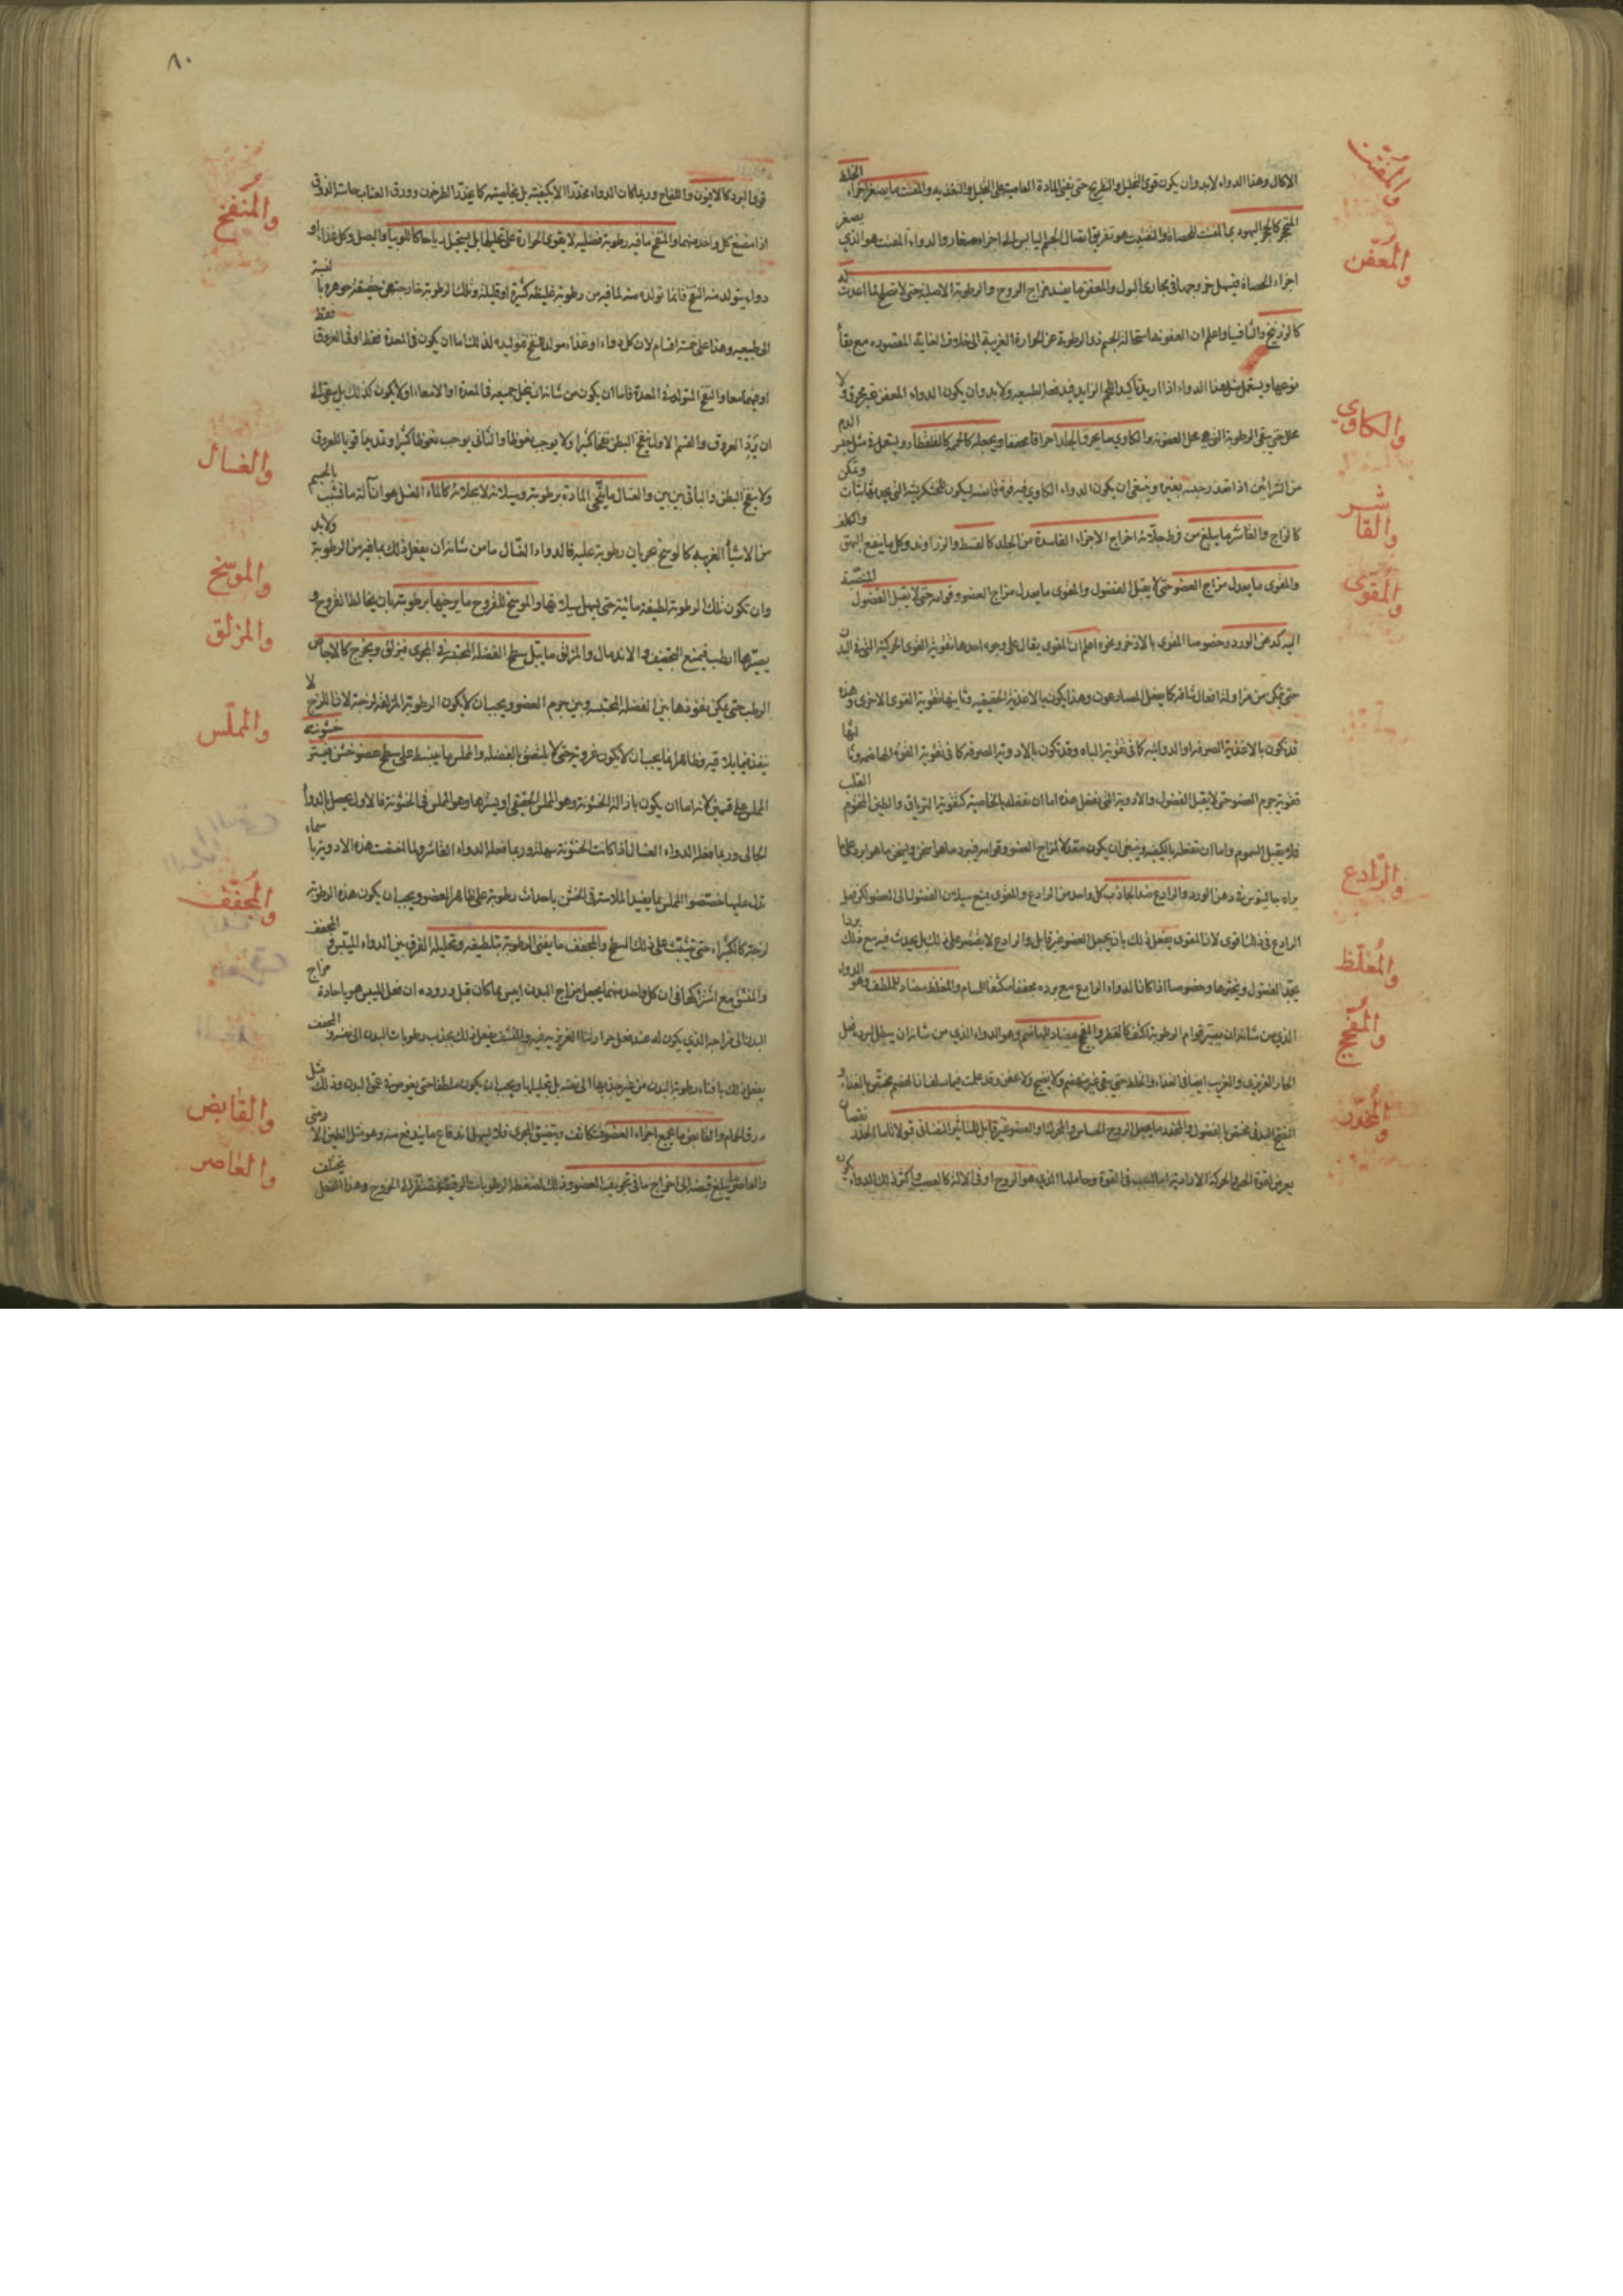 والمفتت
الاكال وهذا الدواء لابد وان يكون قوى التحليل والتقريح حتى يفنى المادة العاصية على التحليل والتغذيه والمفتت ما يصغر اجزاء الخلط
المتحجر كالحجر اليهودى المفتت للحصاة والتفتيت هو تفريق اتصال الجسم اليابس الى اجزاء صغار والدواء المفتت هو الذي يصغر
والمعفّن
اجزاء الحصاة فيسهل خروجها فى مجارى البول والمعفن ما يفسد مزاج الروح والرطوبة الاصلية حتى لا تصلح لما اعدت له
كالزرنيخ والثافسيا واعلم ان العفونة استحالة الجسم ذى الرطوبة عن الحرارة الغريبة الى خلاف الغاية المقصوده مع بقاء
نوعها ويستعمل مثل هذا الدواء اذا اريد تأكيد اللحم الزايد فيدفعه الطبيعه ولابد وان يكون الدواء المعفن غير محرق ولا
والكاوي
محلل حتى يبقى الرطوبة التى هى محل العفونة والكاوي ما يحرق الجلد احراقا مجففا ويجعله كالحممه كالقلقطار ويستعمل فى مثل حبس الدم
من الشرائين اذا تعذر حبسه بغيره وينبغى ان يكون الدواء الكاوي فيه قوة قابضه ليكون الخشكريشة التى يحدثها ثابتات وتمكن
والقاشر
كالزاج والقاشر ما يبلغ من فرط جلائه اخراج الاجزاء الفاسدة من الجلد كالقسط والزراوند وكل ما ينفع البهق والكلف
والمقوى
والمقوى ما يعدل مزاج العضو حتى لا يقبل الفضول والمقوى ما يعدل مزاج العضو وقوامه حتى لا يقبل الفضول المنصبّة
اليه كدهن الورد وخصوصا المقوى بالاذخر ونحوه اعلم ان المقوى يقال على وجوه احدها تقوية القوى المحركة التى فى البدن
حتى تمكن من مزاولة افعال شاقة كما يفعل المصارعون وهذا يكون بالاغذية الحقيقيه وثانيها تقوية القوى الاخرى وهذه
قد تكون بالاغذية الصرفه او الدوائيه كما فى تقوية الباه وقد تكون بالادوية الصرفه كما فى تقوية القوة الهاضمة وثالثها
تقوية جرم العضو حتى لا يقبل الفضول والادوية التى تفعل هذه اما ان تفعله بالخاصية كتقوية الترياق والطين المختوم القلب
فلا يقبل السموم واما ان تفعله بالكيفيه وينبغى ان يكون معتدلا لمزاج العضو وقوامه فيبرد ما هو اسخن ويسخن ما هو ابرد على ما
والرّادع
يراه جالينوس فى دهن الورد والرادع ضد الجاذب كل واحد من الرادع والمقوى يمنع سيلان الفضول الى العضو لكن فعل
الرادع فى ذلك اقوى لان المقوى يفعل ذلك بان يجعل العضو غير قابل والرادع لا يقتصر على ذلك بل يحدث فيه مع ذلك بردا
والمُغلّظ
يجمد الفضول ويخثرها وخصوصا اذا كان الدواء الرادع مع برده مجففا مكثفا للمسام والمغلظ مضاد للملطف وهو الدواء
والمُفجّج
الذي من شانه ان يصير قوام الرطوبة اكثف كالفطر والمفجج مضاد للهاضم وهو الدواء الذي من شانه ان يبطل لبرده فعل
الحار الغريزى والغريب ايضا فى الغذاء والخلط حتى يبقى غير منهضم ولا نضيج ولا عفن وقد علمت فيما سلف ان الهضم يختص بالغذاء و
والمُخدّر
النضج الخلطى يختص بالفضول والمخدر ما يجعل الروح الحساس والمحرك للعضو غير قابل للتاثير النفسانى قبولا تاما الخدر نقصان
يعرض لقوة الحس والحركة الارادية اما لسبب فى القوة وحاملها الذي هو الروح او فى الالة كالعصب واكثر ذلك الدواء يكون
٨٠
قوى البرد كالافيون واللفاح وربما كان الدواء مخدّرا لا بكيفيته بل بخاصيته كما يخدّر الطرخون وورق العناب حاسة الذوق
والمُنفخ
اذا مضغ كل واحد منهما والمنفخ ما فيه رطوبة فضليه لا يقوى الحرارة على تحليلها بل يستحيل رياحا كاللوبيا والبصل وكل غذاء او
دواء يتولد منه النفخ فانما تولده منه لما فيه من رطوبة غليظه كثيرة او قليلة وتلك الرطوبة خارجة عن حقيقة جوهره بالنسبة
الى طبيعيه وهذا على خمسة اقسام لان كل دواء او غذاء مولد للنفخ فتوليده لذلك اما ان يكون فى المعدة فقط او فى العروق فقط
او فيهما معا والنفخ المتولد فى المعدة فاما ان يكون من شانه ان ينحل جميعه فى المعدة او الامعاء او لا يكون كذلك بل يبقى الى
ان يَرِد العروق والقسم الاول ينفخ البطن نفخا كثيرا ولا يوجب نعوظا والثانى يوجب نعوظا كثيرا وتمديدا قويا للعروق
والغسال
ولا ينفخ البطن والباقى بين بين والغسال ما ينقى المادة برطوبته وسيلانه لا بجلائه كالماء الغسل هو ازالة ما تشبث بالجسم
من الاشيأ الغريبه كالوسخ بجريان رطوبة عليه فالدواء الغسال ما من شانه ان يفعل ذلك بما فيه من الرطوبة ولابد
والموسّخ
وان تكون تلك الرطوبة لطيفة مائية حتى يسهل سيلانها والموسخ للقروح ما يرخيها برطوبته بان يخالط القروح و
والمزلق
يصيّرها ارطب فيمنع التجفيف والاندمال والمزلق ما يبل سطح الفضلة المحتبسة فى المجرى فيزلق ويخرج كالاجاص
الرطب حتى يمكن نفوذها بين الفضلة المحتبسه وبين جرم العضو ويجب ان لا يكون الرطوبة المزلقة لزجة لان اللزج لا
والمملّس
ينفذ فيما يلاقيه وظاهر انها يجب ان لا يكون غروية حتى لا يلتصق بالفضله والمملس ما ينبسط على سطح عضو خشن فيستر خشونته
المملس على قسمين لانه اما ان يكون بازالة الخشونة وهو المملس الحقيقى او يسترها وهو المملس فى الخشونة فالاول يحصل بالدواء
الجالى وربما فعله الدواء الغسال اذا كانت الخشونة سهلة وربما فعله الدواء القاشر ولما اختصت هذه الادوية باسماء
والمجفّف
تدل عليها خصّصوا المملس بما يفيد الملاسة فى الخشن باحداث رطوبة على ظاهر العضو ويجب ان يكون هذه الرطوبة
لزجة كالكثيراء حتى تتثبث على ذلك السطح والمجفف ما يفنى الرطوبة بتلطيفه وتحليله الفرق بين الدواء الميبّس والمجفف
والمنشف مع اشتراكها فى ان كل واحد منهما يجعل مزاج البدن ايبس مما كان قبل وروده ان فعل الميبس هو باحالة مزاج
البدن الى مزاجه الذي يكون له عند فعل حرارتنا الغريزيه فيه والمنشف يفعل ذلك بجذب رطوبات البدن الى نفسه والمجفف
يفعل ذلك بافناء رطوبة البدن من غير جذبها الى نفسه بل بتحليلها ويجب ان يكون ملطفا حتى يغوص فى عمق البدن وذلك مثل
والقابض
ذرق الحمام والقابض ما يجمع اجزاء العضو فتتكاثف ويتضيق المجرى فلا يسهل اندفاع ما يندفع منه وهو مثل الطين الارمنى
والعاصر
والعاصر ما يبلغ قبضه الى اخراج ما فى تجويف العضو وذلك لضغط الرطوبات الرقيقة فتضطر الى الخروج وهذا الفعل يختلف